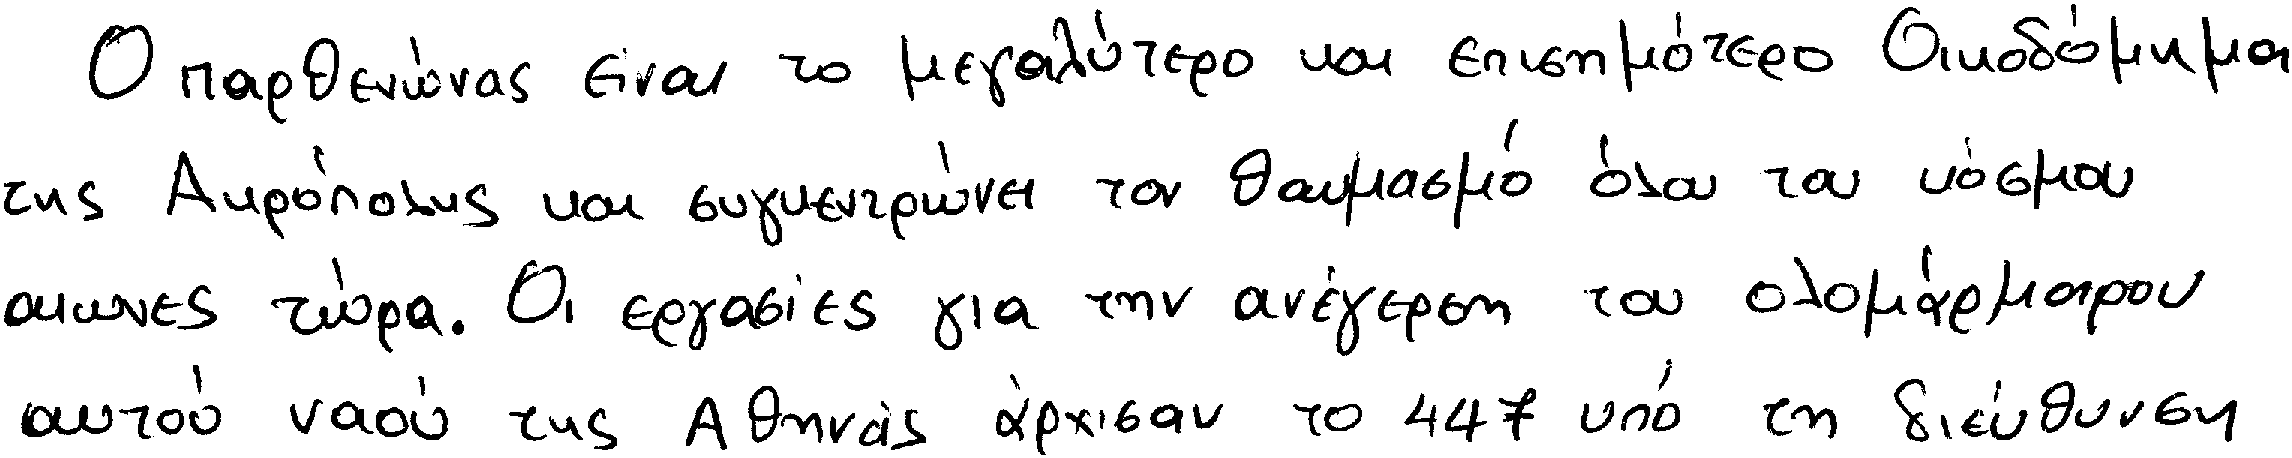 Ο παρθενώνας είναι το μεγαλύτερο και επισημότερο Οικοδόμημα
της Ακρόπολης και συγκεντρώνει τον θαυμασμό όλου του κόσμου
αιωνες τώρα. Οι εργασίες για την ανέγερση του ολομάρμαρου
αυτού ναού της Αθηνάς άρχισαν το 447 υπό τη διεύθυνση